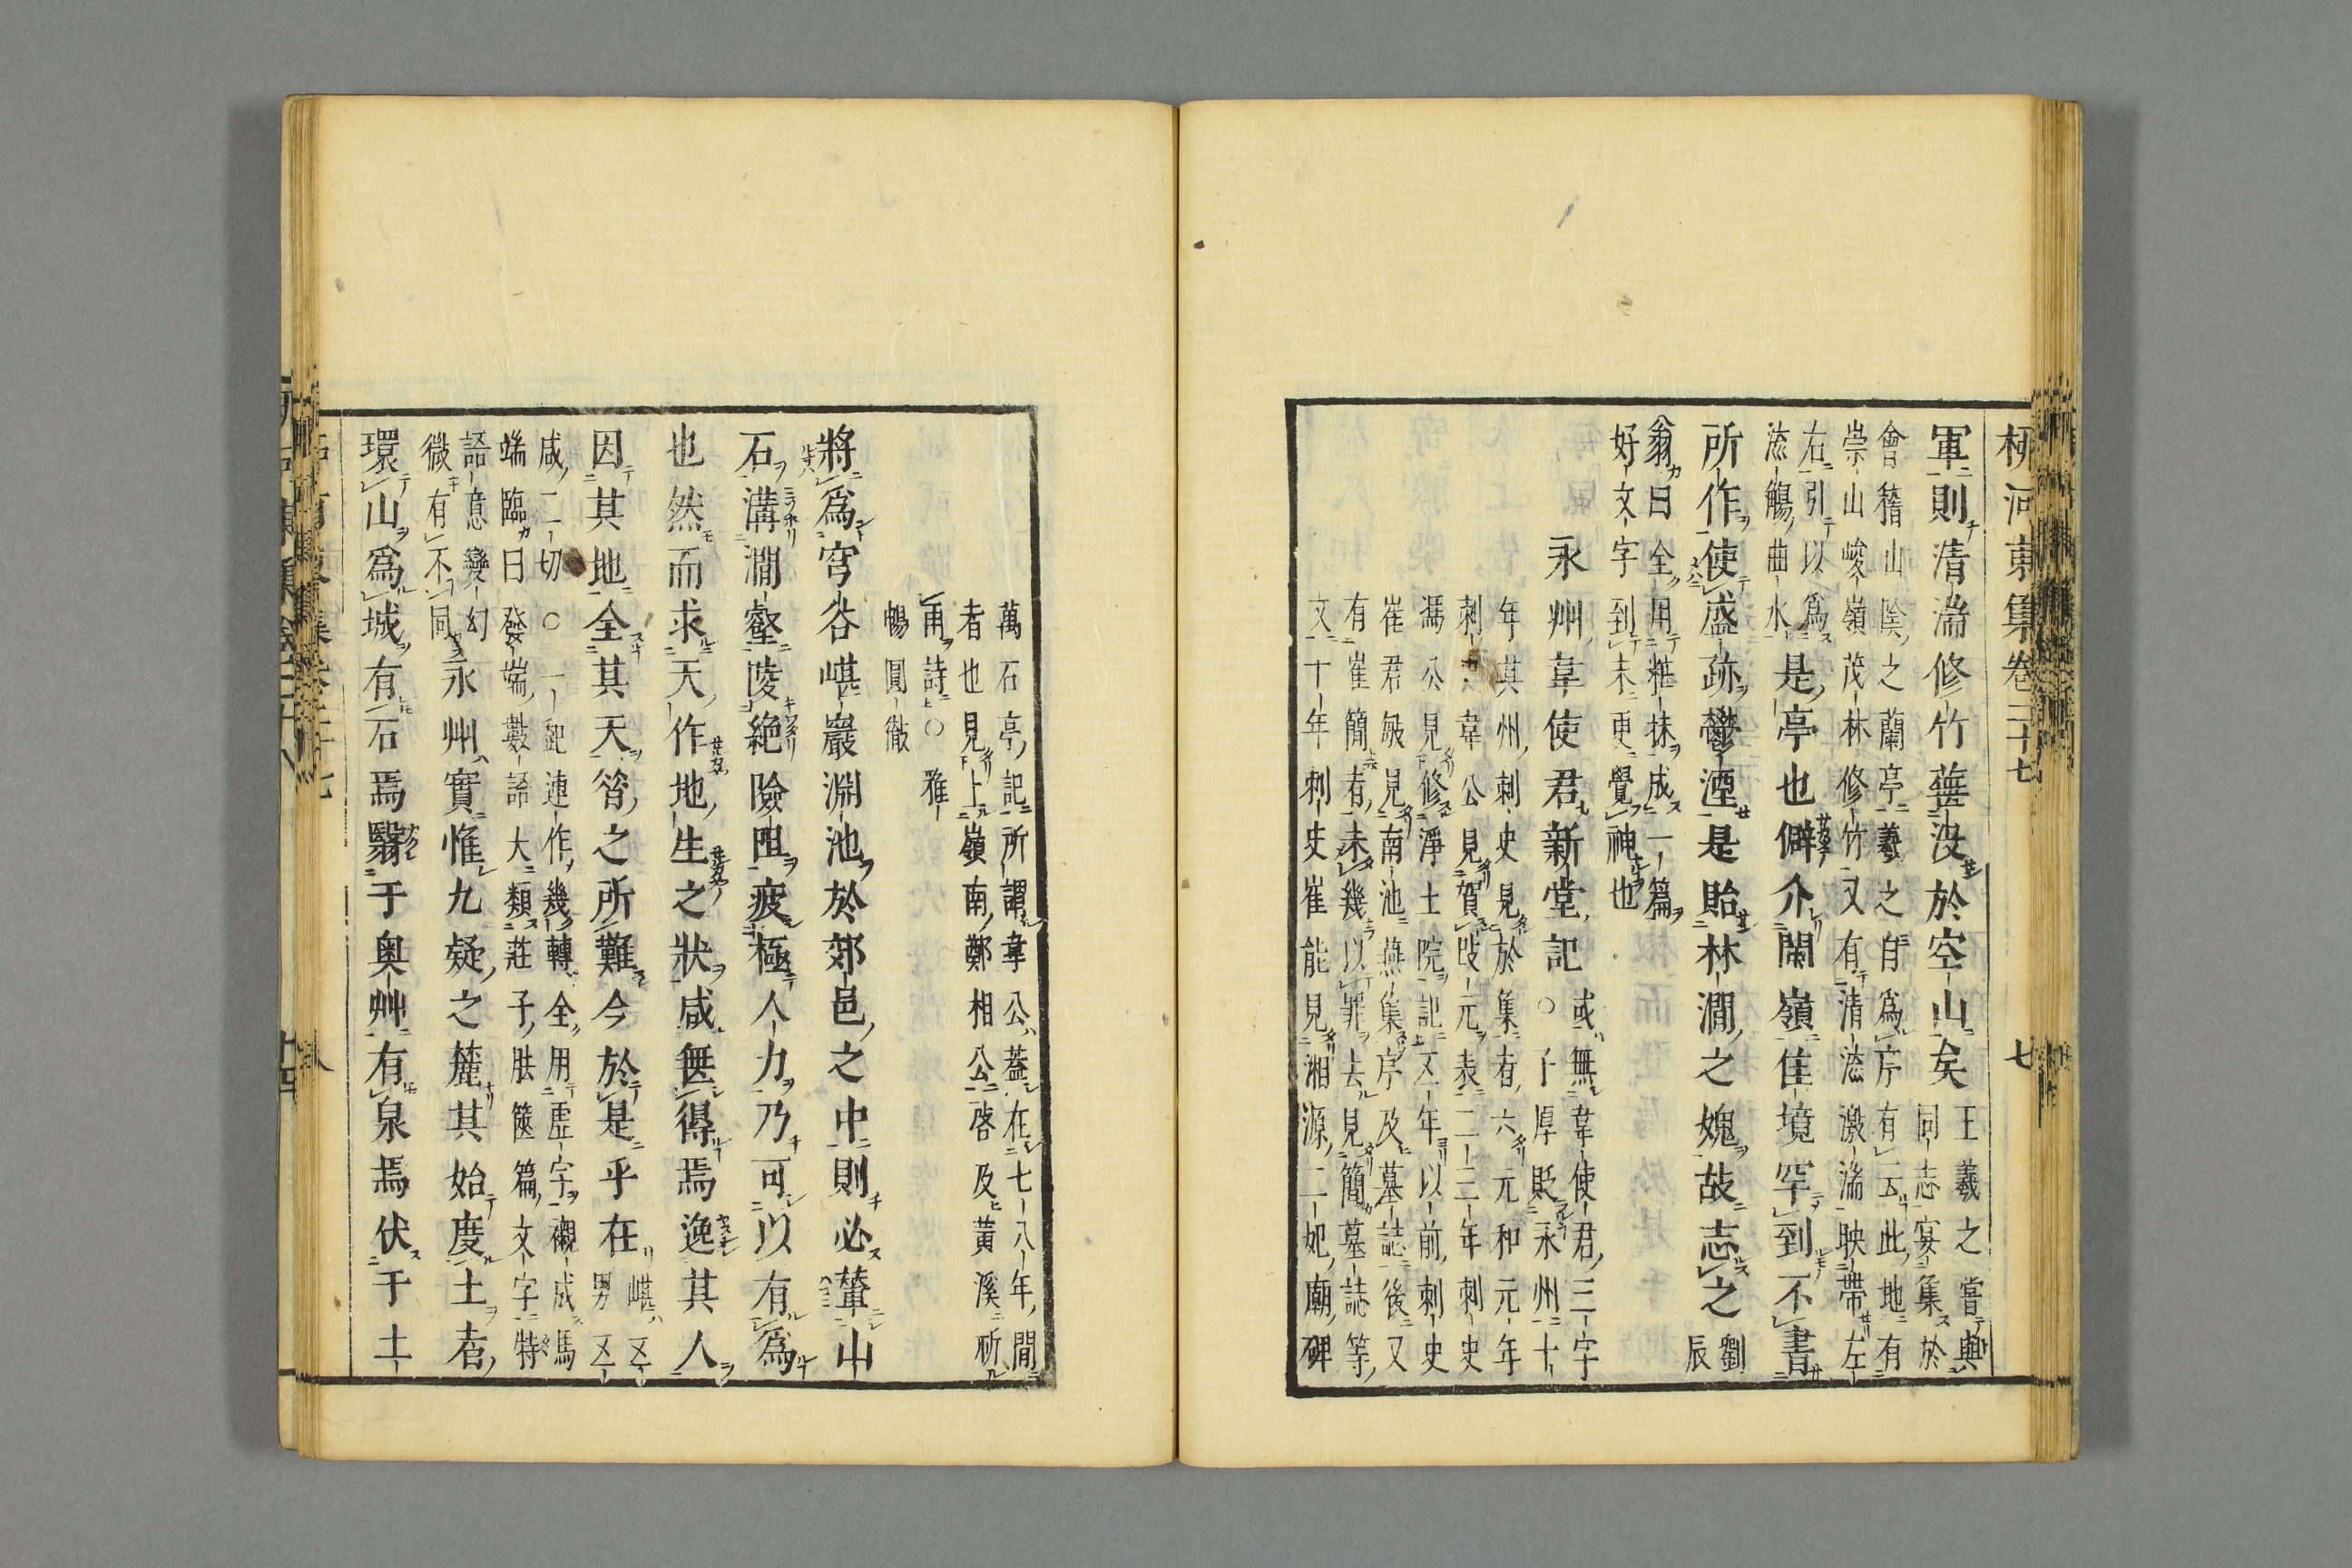 柳河東集卷二十七　七
軍則清湍修竹蕪没於空山矣
王羲之嘗與
同志宴集於
會稽山陰之蘭亭羲之自爲序有云此地有
崇山峻嶺茂林修竹又有清流激湍映帶左
右引以爲
流觴曲水
是亭也僻介閩嶺佳境罕到不書
所作使盛跡鬱湮是貽林澗之媿故志之
劉
辰
翁曰全用粧抹成一篇
好文字到末更覺神也
永州韋使君新堂記
或無韋使君三字
○子厚貶永州十
年其州刺史見於集者六元和元年
刺史韋公見賀改元表二三年刺史
馮公見修淨土院記五年以前刺史
崔君敏見南池燕集序及墓誌後又
有崔簡者未幾以罪去見簡墓誌等
文十年刺史崔能見湘源二妃廟碑
萬石亭記所謂韋公蓋在七八年間
者也見上嶺南鄭相公啓及黃溪祈
雨詩○雅
暢圓徹
將爲穹谷嵁巖淵池於郊邑之中則必輦山
石溝澗壑陵絶險阻疲極人力乃可以有爲
也然而求天作地生之狀咸無得焉逸其人
因其地全其天昔之所難今於是乎在
嵁五
男五
咸二切○一記連作幾轉全用虚字襯成馬
端臨曰發端數語大類莊子胠篋篇文字特
語意變幻
微有不同
永州實惟九疑之麓其始度土者
環山爲城有石焉翳于奥艸有泉焉伏于土